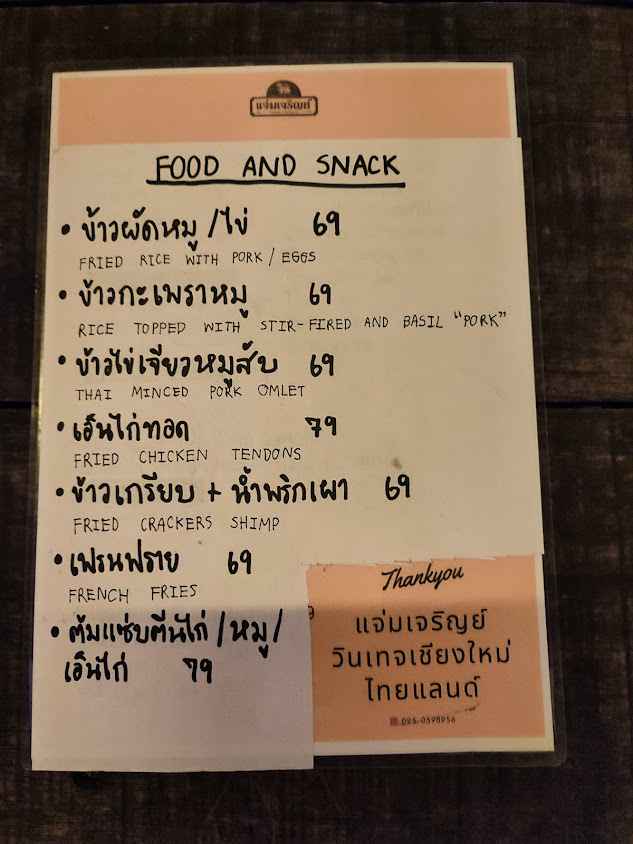 แจ่มเจริญย์
FOOD AND SNACK
• ข้าวผัดหมู/ไข่ 69
FRIED RICE WITH PORK/EGGS
• ข้าวกะเพราหมู 69
RICE TOPPED WITH STIR-FIRED AND BASIL "PORK"
• ข้าวไข่เจียวหมูสับ 69
THAI MINCED PORK OMLET
• เอ็นไก่ทอด 79
FRIED CHICKEN TENDONS
• ข้าวเกรียบ + น้ำพริกเผา 69
FRIED CRACKERS SHIMP
• เฟรนฟราย 69
FRENCH FRIES
• ต้มแซ่บตีนไก่/หมู/
เอ็นไก่ 79
Thankyou
แจ่มเจริญย์
วินเทจเชียงใหม่
ไทยแลนด์